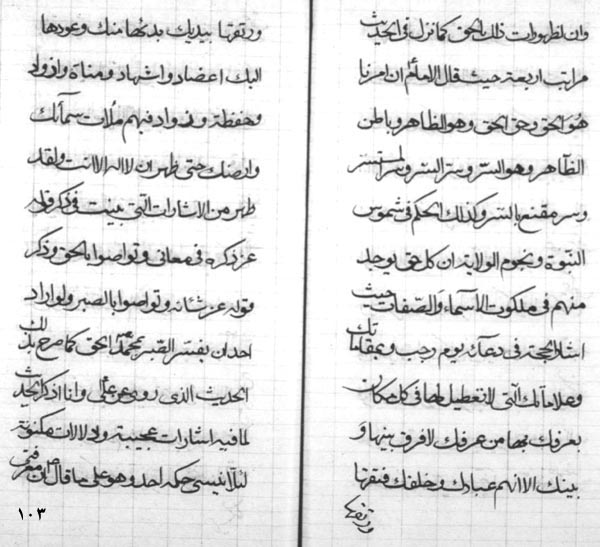 وان لظهورات ذلك الحق كما نزل في الحديث
مراتب اربعة حيث قال الامام ان امرنا
هو الحق وحق الحق وهو الظاهر وباطن
الظاهر وهو السر وسر السر وسر المستسر
وسر مقنع بالسر وكذلك الحكم في شموس
النبوة ونجوم الولاية ان كل حق يوجد
منهم في ملكوت الاسماء والصفات حيث
اشار الحجة في دعائه يوم رجب وبمقاماتك
وعلاماتك التي لا تعطيل لها في كل مكان
يعرفك بها من عرفك لا فرق بينها و
بينك الا انهم عبادك وخلقك فتقها
ورتقها
ورتقها بيديك بدئها منك وعودها
اليك اعضاد واشهاد ومناة وازواد
وحفظة ورواد فبهم ملات سمائك
وارضك حتى ظهر ان لا اله الا انت ولقد
ظهر من الاشارات التي بينت في ذكر قوله
عز ذكره في معاني وتواصوا بالحق وذكر
قوله عز شانه وتواصوا بالصبر ولو اراد
احد ان يفسر الصبر بمحمد الحق كما صرح بذلك
الحديث الذي روى عن علي وانا اذكر الحديث
لما فيه اشارات عجيبة ودلالات مكنونة
لئلا ينسى حكمه احد وهو على ما قال من معرفتي
١٠٣